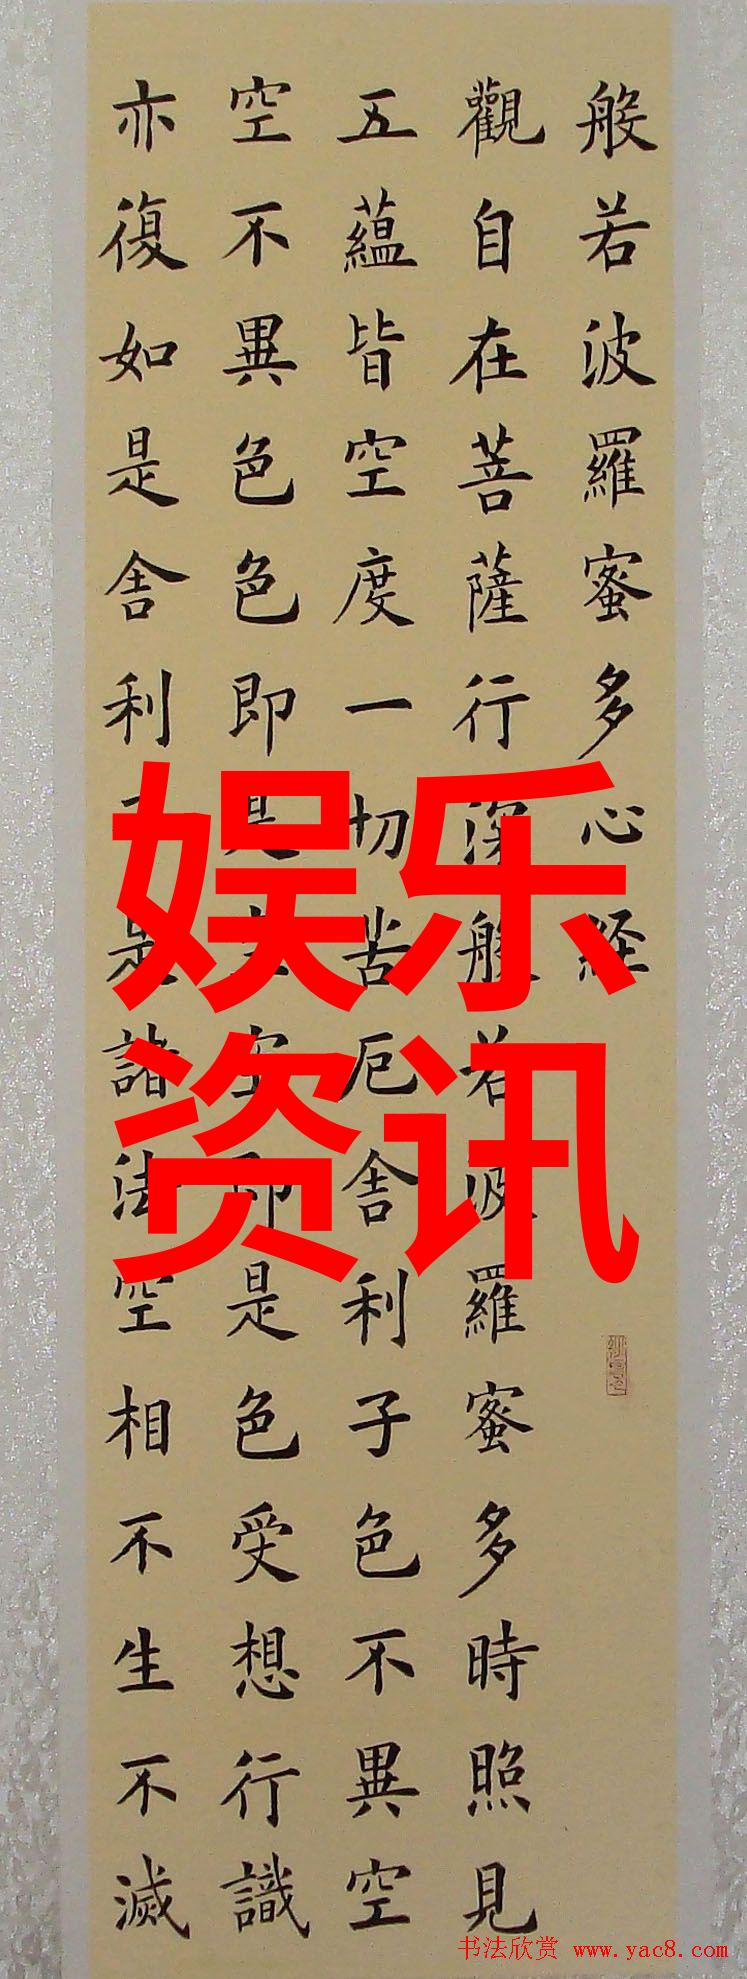 般若波羅蜜多心経
觀自在菩薩行深般若波羅蜜多時照見
五蘊皆空度一切苦厄舎利子色不異空
空不異色色即是空空即是色受想行識
亦復如是舎利子是諸法空相不生不滅
娱乐
资讯
书法欣赏 www.yac8.com